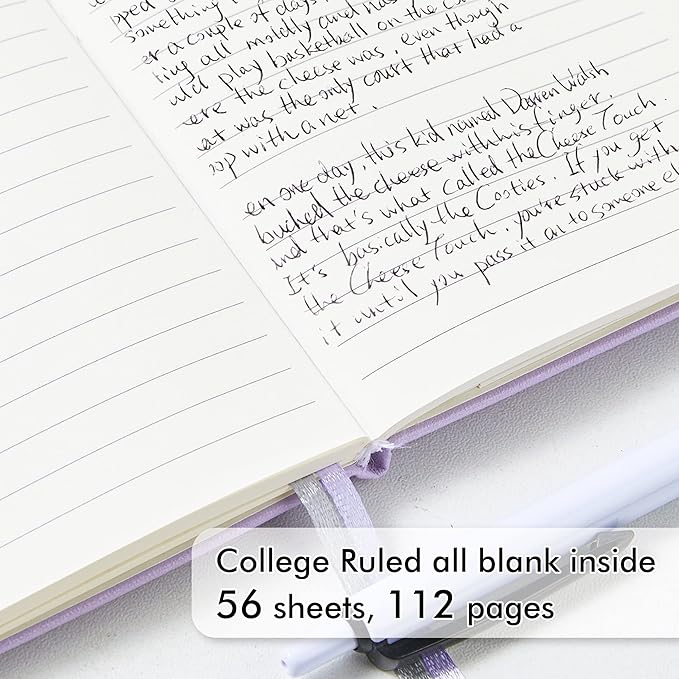 pped
something
er a couple of days
ting all moldly and nas
uld play basketball on the
ere the cheese was, even though
at was the only court that had a
oop with a net.
en one day, this kid named Darren Walsh
buched the cheese with his finger,
and that's what called the Cheese Touch.
It's basically the Cooties. If you get
the Cheese Touch, you're stuck with
it until you pass it on to someone el
College Ruled all blank inside
56 sheets, 112 pages